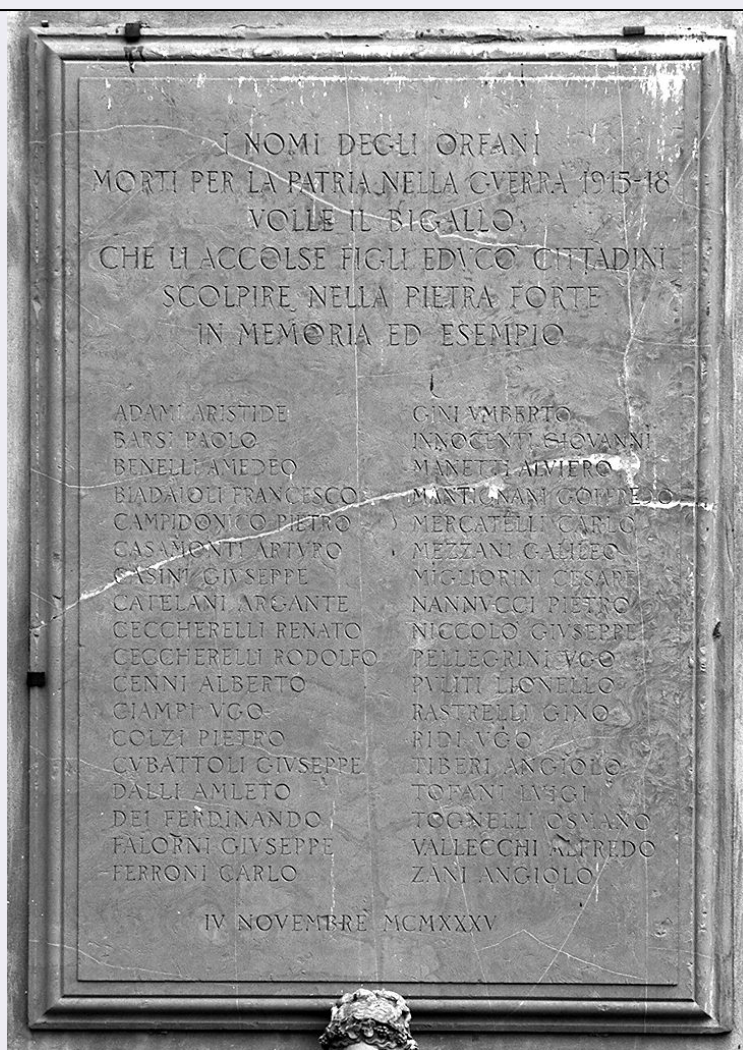 I NOMI DEGLI ORFANI
MORTI PER LA PATRIA NELLA GVERRA 1915-18
VOLLE IL BIGALLO
CHE LI ACCOLSE FIGLI EDVCO' CITTADINI
SCOLPIRE NELLA PIETRA FORTE
IN MEMORIA ED ESEMPIO
ADAMI ARISTIDE
BARSI PAOLO
BENELLI AMEDEO
BIADAIOLI FRANCESCO
CAMPIDONICO PIETRO
CASAMONTI ARTVRO
CASINI GIVSEPPE
CATELANI ARGANTE
CECCHERELLI RENATO
CECCHERELLI RODOLFO
CENNI ALBERTO
CIAMPI VGO
COLZI PIETRO
CVBATTOLI GIVSEPPE
DALLI AMLETO
DEI FERDINANDO
FALORNI GIVSEPPE
FERRONI CARLO
GINI VMBERTO
INNOCENTI GIOVANNI
MANETTI ALVIERO
MANTIGNANI GOFFREDO
MERCATELLI CARLO
MEZZANI GALILEO
MIGLIORINI CESARE
NANNVCCI PIETRO
NICCOLO' GIVSEPPE
PELLEGRINI VGO
PVLITI LIONELLO
RASTRELLI GINO
RIDI VGO
TIBERI ANGIOLO
TOFANI LVIGI
TOGNELLI OSMANO
VALLECCHI ALFREDO
ZANI ANGIOLO
IV NOVEMBRE MCMXXXV